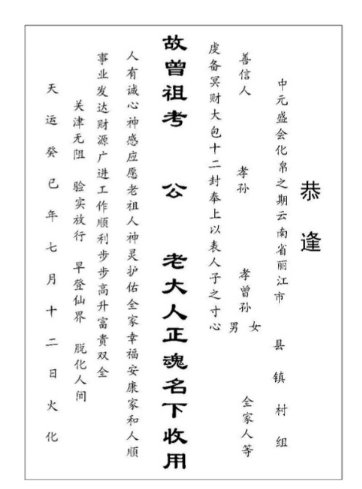 恭逢
中元盛会化帛之期云南省丽江市 县 镇 村 组
善信人 孝孙 孝曾孙 男 女 全家人等
虔备冥财大包十二封奉上以表人子之寸心
故曾祖考 公 老大人正魂名下收用
人有诚心神感应愿老祖人神灵护佑全家幸福安康家和人顺
事业发达财源广进工作顺利步步高升富贵双全
关津无阻 验实放行 早登仙界 脱化人间
天运癸巳年七月十二日火化